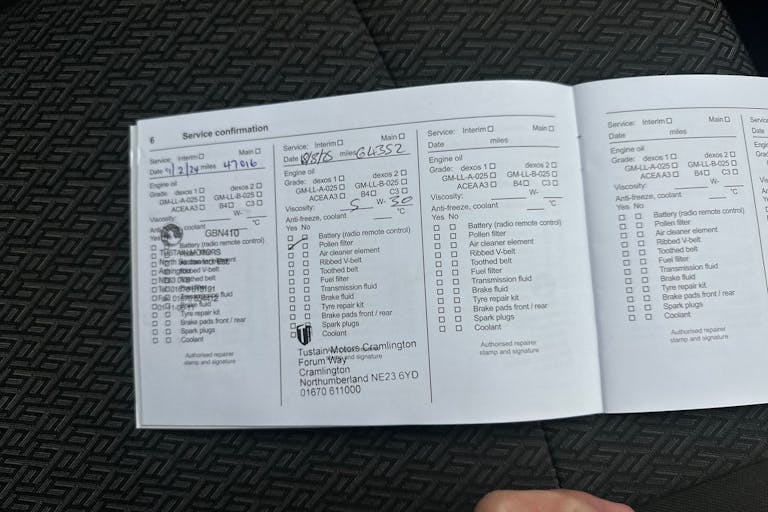 6 Service confirmation
Service: Interim Main
Date 9/2/24 miles 47016
Engine oil
Grade: dexos 1 dexos 2
GM-LL-A-025 GM-LL-B-025
ACEA A3 B4 C3
Viscosity: W-
coolant °C
Yes GBN410
Battery (radio remote control)
TUSTAIN MOTORS
Ribbed V-belt
Toothed belt
fluid
Brake fluid
Tyre repair kit
Brake pads front / rear
Spark plugs
Coolant
Authorised repairer
stamp and signature
Service: Interim Main
Date 8/8/25 miles 64352
Engine oil
Grade: dexos 1 dexos 2
GM-LL-A-025 GM-LL-B-025
ACEA A3 B4 C3
Viscosity: 5 W- 30
Anti-freeze, coolant °C
Yes No
Battery (radio remote control)
Pollen filter
Air cleaner element
Ribbed V-belt
Toothed belt
Fuel filter
Transmission fluid
Brake fluid
Tyre repair kit
Brake pads front / rear
Spark plugs
Coolant
Tustain Motors Cramlington
Forum Way
stamp and signature
Cramlington
Northumberland NE23 6YD
01670 611000
Service: Interim Main
Date miles
Engine oil
Grade: dexos 1 dexos 2
GM-LL-A-025 GM-LL-B-025
ACEA A3 B4 C3
Viscosity: W-
Anti-freeze, coolant °C
Yes No
Battery (radio remote control)
Pollen filter
Air cleaner element
Ribbed V-belt
Toothed belt
Fuel filter
Transmission fluid
Brake fluid
Tyre repair kit
Brake pads front / rear
Spark plugs
Coolant
Authorised repairer
stamp and signature
Service: Interim Main
Date miles
Engine oil
Grade: dexos 1 dexos 2
GM-LL-A-025 GM-LL-B-025
ACEA A3 B4 C3
Viscosity: W-
Anti-freeze, coolant °C
Yes No
Battery (radio remote control)
Pollen filter
Air cleaner element
Ribbed V-belt
Toothed belt
Fuel filter
Transmission fluid
Brake fluid
Tyre repair kit
Brake pads front / rear
Spark plugs
Coolant
Authorised repairer
stamp and signature
Service
Date
Engine
Grade:
Yes No